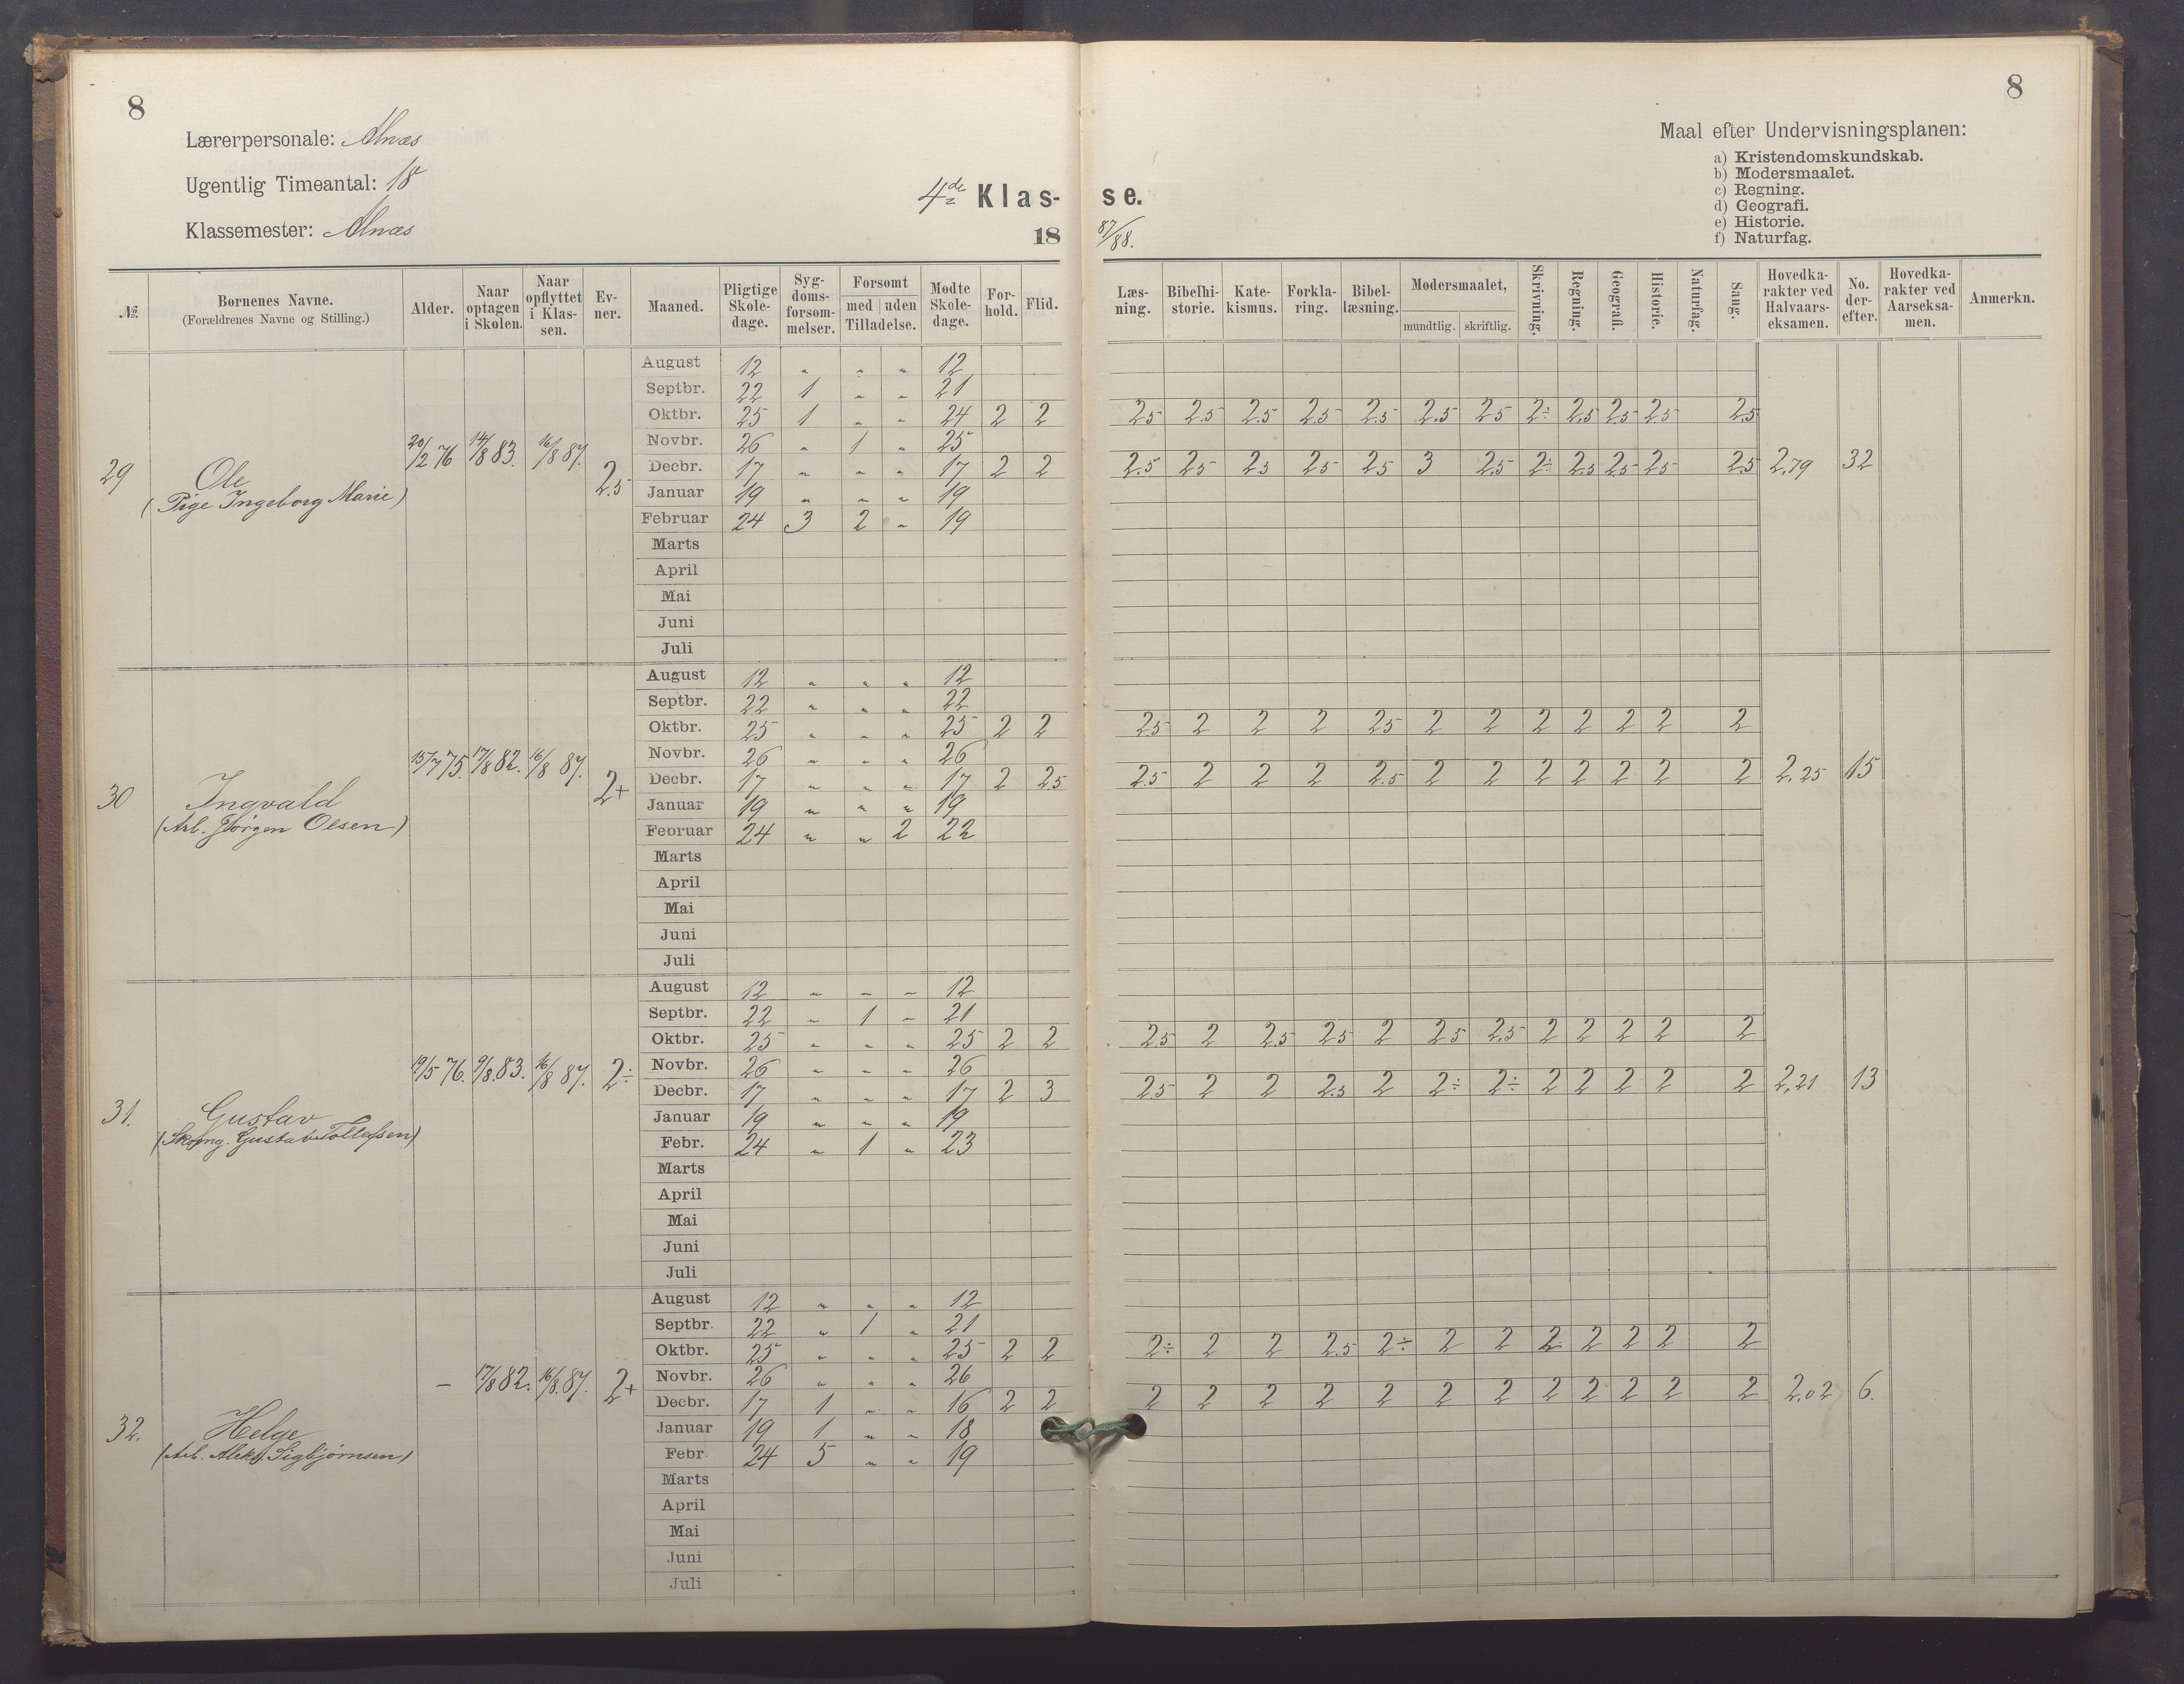 8
Lærerpersonale: Alnæs
Ugentlig Timeantal: 18
Klassemester: Alnæs
4de Klas-
18
№ Børnenes Navne. (Forældrenes Navne og Stilling.) Alder. Naar optagen i Skolen. Naar opflyttet i Klassen. Evner. Maaned. Pligtige Skoledage. Sygdomsforsømmelser. Forsømt med uden Tilladelse. Mødte Skoledage. Forhold. Flid.
29 Ole (Pige Ingeborg Marie) 20/2 76 14/8 83. 16/8 87. 2.5
August 12 " " " 12
Septbr. 22 1 " " 21
Oktbr. 25 1 " " 24 2 2
Novbr. 26 " 1 " 25
Decbr. 17 " " " 17 2 2
Januar 19 " " " 19
Februar 24 3 2 " 19
Marts
April
Mai
Juni
Juli
30 Ingvald (Arb. Jörgen Olsen) 15/7 75. 17/8 82. 16/8 87. 2+
August 12 " " " 12
Septbr. 22 " " " 22
Oktbr. 25 " " " 25 2 2
Novbr. 26 " " " 26
Decbr. 17 " " " 17 2 2.5
Januar 19 " " " 19
Februar 24 " " 2 22
Marts
April
Mai
Juni
Juli
31. Gustav (Skomg. Gustav Tollefsen) 19/5 76. 9/8 83. 16/8 87. 2÷
August 12 " " " 12
Septbr. 22 " 1 " 21
Oktbr. 25 " " " 25 2 2
Novbr. 26 " " " 26
Decbr. 17 " " " 17 2 3
Januar 19 " " " 19
Febr. 24 " 1 " 23
Marts
April
Mai
Juni
Juli
32. Helge (Arb. Sigbjørnsen) – 17/8 82. 16/8 87. 2+
August 12 " " " 12
Septbr. 22 " 1 " 21
Oktbr. 25 " " " 25 2 2
Novbr. 26 " " " 26
Decbr. 17 1 " " 16 2 2
Januar 19 1 " " 18
Febr. 24 5 " " 19
Marts
April
Mai
Juni
Juli
8
Maal efter Undervisningsplanen:
a) Kristendomskundskab.
b) Modersmaalet.
c) Regning.
d) Geografi.
e) Historie.
f) Naturfag.
se.
87/88.
Læsning. Bibelhistorie. Katekismus. Forklaring. Bibellæsning. Modersmaalet, mundtlig. skriftlig. Skrivning. Regning. Geografi. Historie. Naturfag. Sang. Hovedkarakter ved Halvaarseksamen. No. derefter. Hovedkarakter ved Aarseksamen. Anmerkn.
2.5 2.5 2.5 2.5 2.5 2.5 2.5 2÷ 2.5 2.5 2.5 2.5
2.5 2.5 2.5 2.5 2.5 3 2.5 2÷ 2.5 2.5 2.5 2.5 2,79 32
2.5 2 2 2 2.5 2 2 2 2 2 2 2
2.5 2 2 2 2.5 2 2 2 2 2 2 2 2,25 15
2.5 2 2.5 2.5 2 2.5 2.5 2 2 2 2 2
2.5 2 2 2.5 2 2÷ 2÷ 2 2 2 2 2 2,21 13
2÷ 2 2 2.5 2÷ 2 2 2 2 2 2 2
2 2 2 2 2 2 2 2 2 2 2 2 2,02 6.